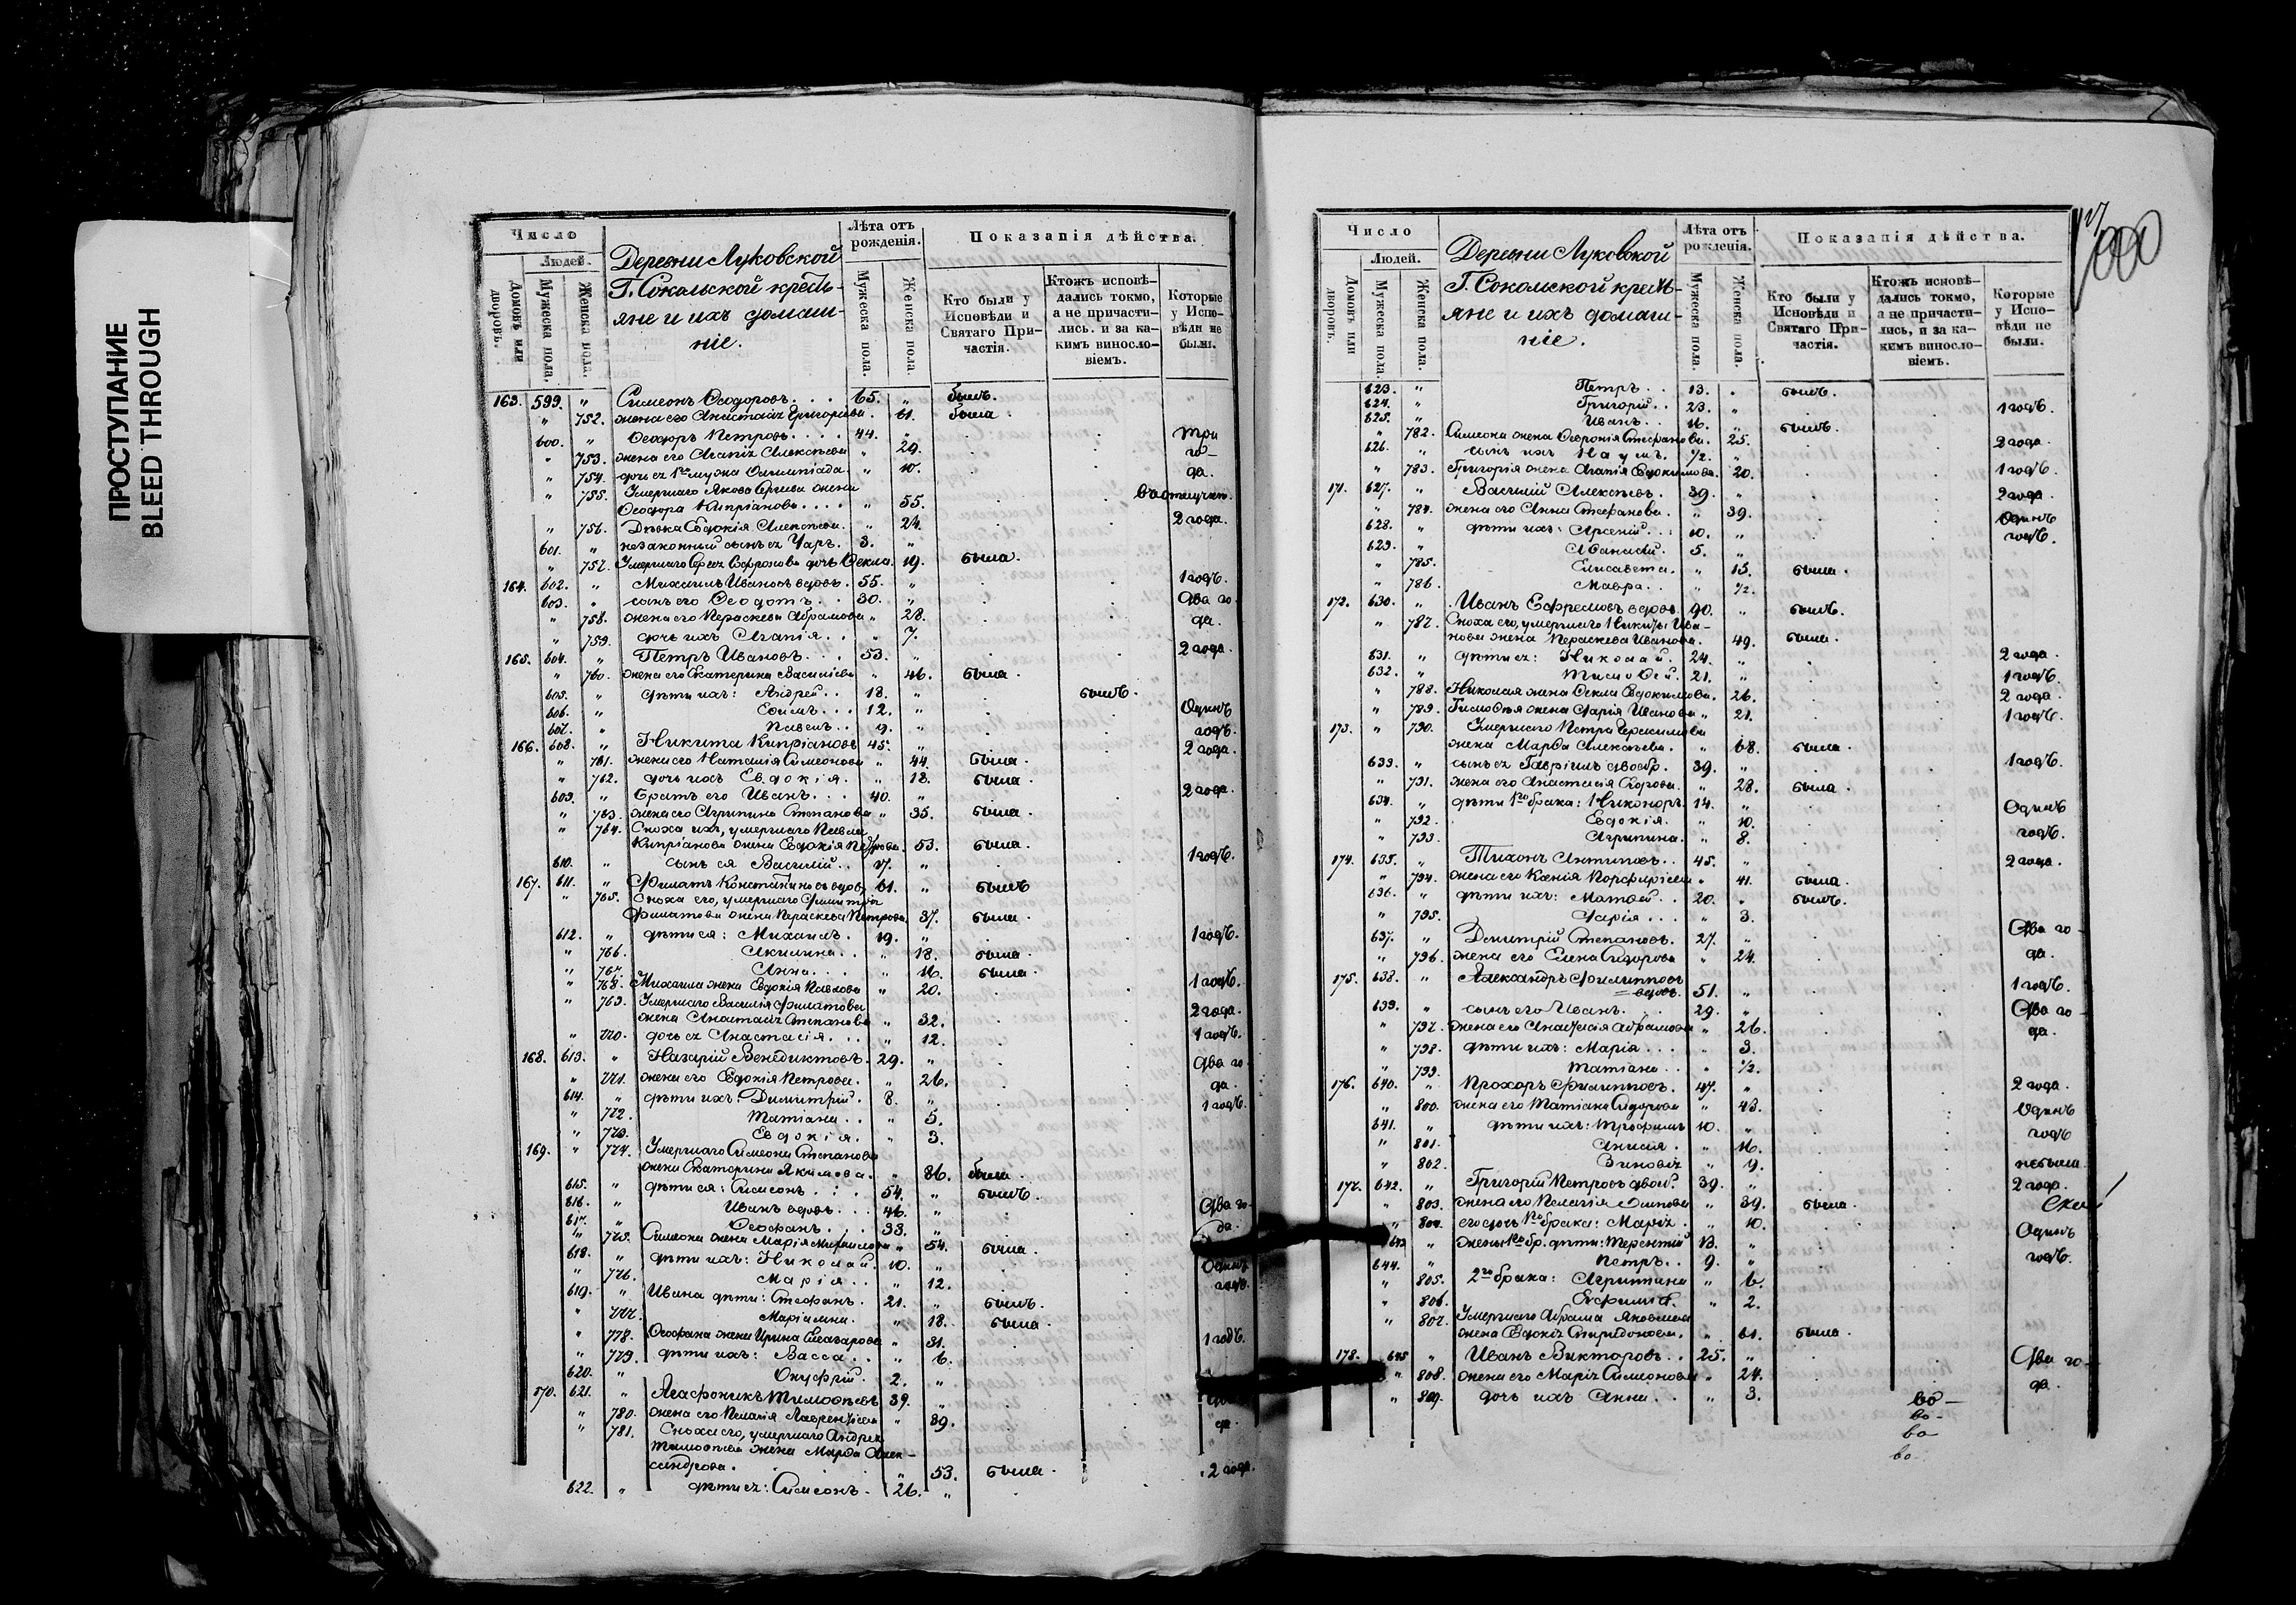 ПРОСТУПАНИЕ
BLEED THROUGH
Число
Людей.
Домовъ или дворовъ.
Мужеска пола.
Женска пола.
Деревни Луковской
Г. Сокольской кресть-
яне и ихъ домаш-
ніе.
Лѣта отъ рожденія.
Мужеска пола.
Женска пола.
Показанія дѣйства.
Кто были у Исповѣди и Святаго При-частія.
Ктожъ исповѣ-дались токмо, а не причасти-лись. и за ка-кимъ винословіемъ.
Которые у Испо-вѣди не были.
163. 599. " Симеонъ Ѳеодоровъ. 65. " былъ.
" 752. жена его Анастасія Григорьева. 61. была
600. " Ѳеодоръ Петровъ. 44. " три
" 753. жена его Агапія Алексѣева " 29. го-
" 754. дочь ея 1го мужа Олимпіада. " 10. да.
" 755. Умершаго Якова Сергіева жена
Ѳеодора Кипріанова. " 55. въ отлучкѣ.
" 756. Дѣвка Евдокія Алексѣева. " 24. 2 года.
601. " незаконный сынъ ея Уаръ. 3. "
" 757. Умершаго Софронова дочь Ѳекла. 19. была.
164. 602. " Михаилъ Ивановъ вдовъ. 55. " 1 годъ.
603. " сынъ его Ѳеодотъ. 30. " Два го-
" 758. жена его Параскева Абрамова " 28. да.
" 759. дочь ихъ Агапія. " 7.
165. 604. " Петръ Ивановъ. 53. " 2 года.
" 760. жена его Екатерина Василіева " 46. была.
605. " дѣти ихъ: Андрей. 18. " былъ.
606. " Ефимъ. 12. " Одинъ
607. " Павелъ. 9. " годъ.
166. 608. " Никита Кипріановъ 45. " 2 года.
" 761. жена его Наталія Симеонова " 44. была.
" 762. дочь ихъ Евдокія. " 18. была.
609. " Братъ его Иванъ. 40. " 2 года.
" 763. жена его Агрипина Степанова " 35. была.
" 764. Сноха ихъ, умершаго Павла
Кипріанова жена Евдокія Петрова. 53. была.
610. " сынъ ея Василій. 17. " 1 годъ.
167. 611. " Филатъ Константиновъ вдовъ 61. " былъ
" 765. Сноха его, умершаго Димитрія
Филатова жена Параскева Петрова. 37. была.
612. " дѣти ея: Михаилъ. 19. " 1 годъ.
" 766. Акилина. " 18. была.
" 767. Анна. " 16. была.
" 768. Михаила жена Евдокія Павлова " 20. 1 годъ.
" 769. Умершаго Василія Филатова
жена Анастасія Степанова " 32. 2 года.
" 770. дочь ея Анастасія. " 12. 1 годъ.
168. 613. " Назарій Венедиктовъ. 29. " Два го-
" 771. жена его Евдокія Петрова. " 26. да.
614. " дѣти ихъ: Димитрій. 8. " 1 годъ.
" 772. Татіана. " 5.
" 773. Евдокія. " 3.
169. " 774. Умершаго Симеона Степанова
жена Екатерина Якимова. " 86. была.
615. " дѣти ея: Симеонъ. 54. " былъ.
616. " Иванъ вдовъ. 46. " Два го-
617. " Ѳеофанъ. 33. " да.
" 775. Симеона жена Марія " 54. была.
618. " дѣти ихъ: Николай. 10. " Одинъ
" 776. Марія. " 12. годъ.
619. " Ивана дѣти: Стефанъ. 21. " былъ.
" 777. Маріамна. " 18. была.
" 778. Ѳеофана жена Ирина Елеазарова " 31. 1 годъ.
" 779. дѣти ихъ: Васса. " 6.
620. " Онуфрій. 2. "
170. 621. " Агафоникъ Тимоѳеевъ 39. "
" 780. жена его Пелагія Лаврентіева " 39. да.
" 781. Сноха его, умершаго Андрея
Тимоѳеева жена Марѳа Алек-
сандрова. " 53. была.
622. " дѣти ея: Симеонъ. 26. " 2 года.
Число
Людей.
Домовъ или дворовъ.
Мужеска пола.
Женска пола.
Деревни Луковской
Г. Сокольской кресть-
яне и ихъ домаш-
ніе.
Лѣта отъ рожденія.
Мужеска пола.
Женска пола.
Показанія дѣйства.
Кто были у Исповѣди и Святаго При-частія.
Ктожъ исповѣ-дались токмо, а не причасти-лись, и за ка-кимъ винословіемъ.
Которые у Испо-вѣди не были.
623. " Петръ. 13. " былъ.
624. " Григорій. 23. " 1 годъ.
625. " Иванъ. 16. " былъ.
" 782. Симеона жена Ѳевронія Стефанова. 25. 2 года.
626. " сынъ ихъ Наумъ. 1/2. "
" 783. Григорія жена Агапія Евдокимова. 20. 1 годъ.
171. 627. " Василій Алексѣевъ. 39. " 2 года.
" 784. жена его Анна Стефанова. " 39. Одинъ
628. " дѣти ихъ: Арсеній. 10. " годъ.
629. " Аѳанасій. 5. "
" 785. Елисавета. " 15. была.
" 786. Мавра. " 1/2.
172. 630. " Иванъ Ефремовъ вдовъ. 90. " былъ.
" 787. Сноха его, умершаго Никиты Ива-
нова жена Параскева Иванова. 49. была.
631. " дѣти ея: Николай. 24. " 2 года.
632. " Тимоѳей. 21. " 1 годъ.
" 788. Николая жена Ѳекла Евдокимова. 26. 2 года.
" 789. Тимоѳея жена Дарія Иванова " 21. 1 годъ.
173. " 790. Умершаго Петра Герасимова
жена Марѳа Алексѣева. " 68. была.
633. " сынъ ея Гавріилъ двоебр. 39. " 1 годъ.
" 791. жена его Анастасія Егорова. " 28. была.
634. " дѣти 1го брака: Никоноръ. 14. " Одинъ
" 792. Евдокія. " 10. годъ.
" 793. Агрипина. " 8.
174. 635. " Тихонъ Антиповъ. 45. " 2 года.
" 794. жена его Ксенія Порфиріева " 41. была.
636. " дѣти ихъ: Матѳей. 20. " былъ.
" 795. Дарія. " 3.
637. " Димитрій Степановъ. 27. " Два го-
" 796. жена его Елена Сидорова " 24. да.
175. 638. " Александръ Филипповъ
вдовъ. 51. " 1 годъ.
639. " сынъ его Иванъ. 29. " Два го-
" 797. жена его Анастасія Абрамова " 26. да.
" 798. дѣти ихъ: Марія. " 3.
" 799. Татіана. " 1/2.
176. 640. " Прохоръ Филипповъ. 47. " 2 года.
" 800. жена его Татіана Сидорова " 43. Одинъ
641. " дѣти ихъ: Трофимъ 10. " годъ
" 801. Анисія. " 16.
" 802. Зиновія " 9. не была.
177. 642. " Григорій Петровъ двоеб. 39. " 2 года.
" 803. жена его Пелагія " 39. была.
" 804. его дочь 1го брака: Марія. " 10. Одинъ
643. " жены 1го бр. дѣти: Терентій 13. " годъ.
644. " Петръ. 9. "
" 805. 2го брака: Агрипина " 6.
" 806. Евфимія. " 2.
" 807. Умершаго Абрама Яковлева
жена Евдокія Спиридонова. " 61. была.
178. 645 " Иванъ Викторовъ. 25. " Два го-
" 808. жена его Марія Симеонова " 24. да.
" 809. дочь ихъ Анна. " 3.
во-
во-
во
во